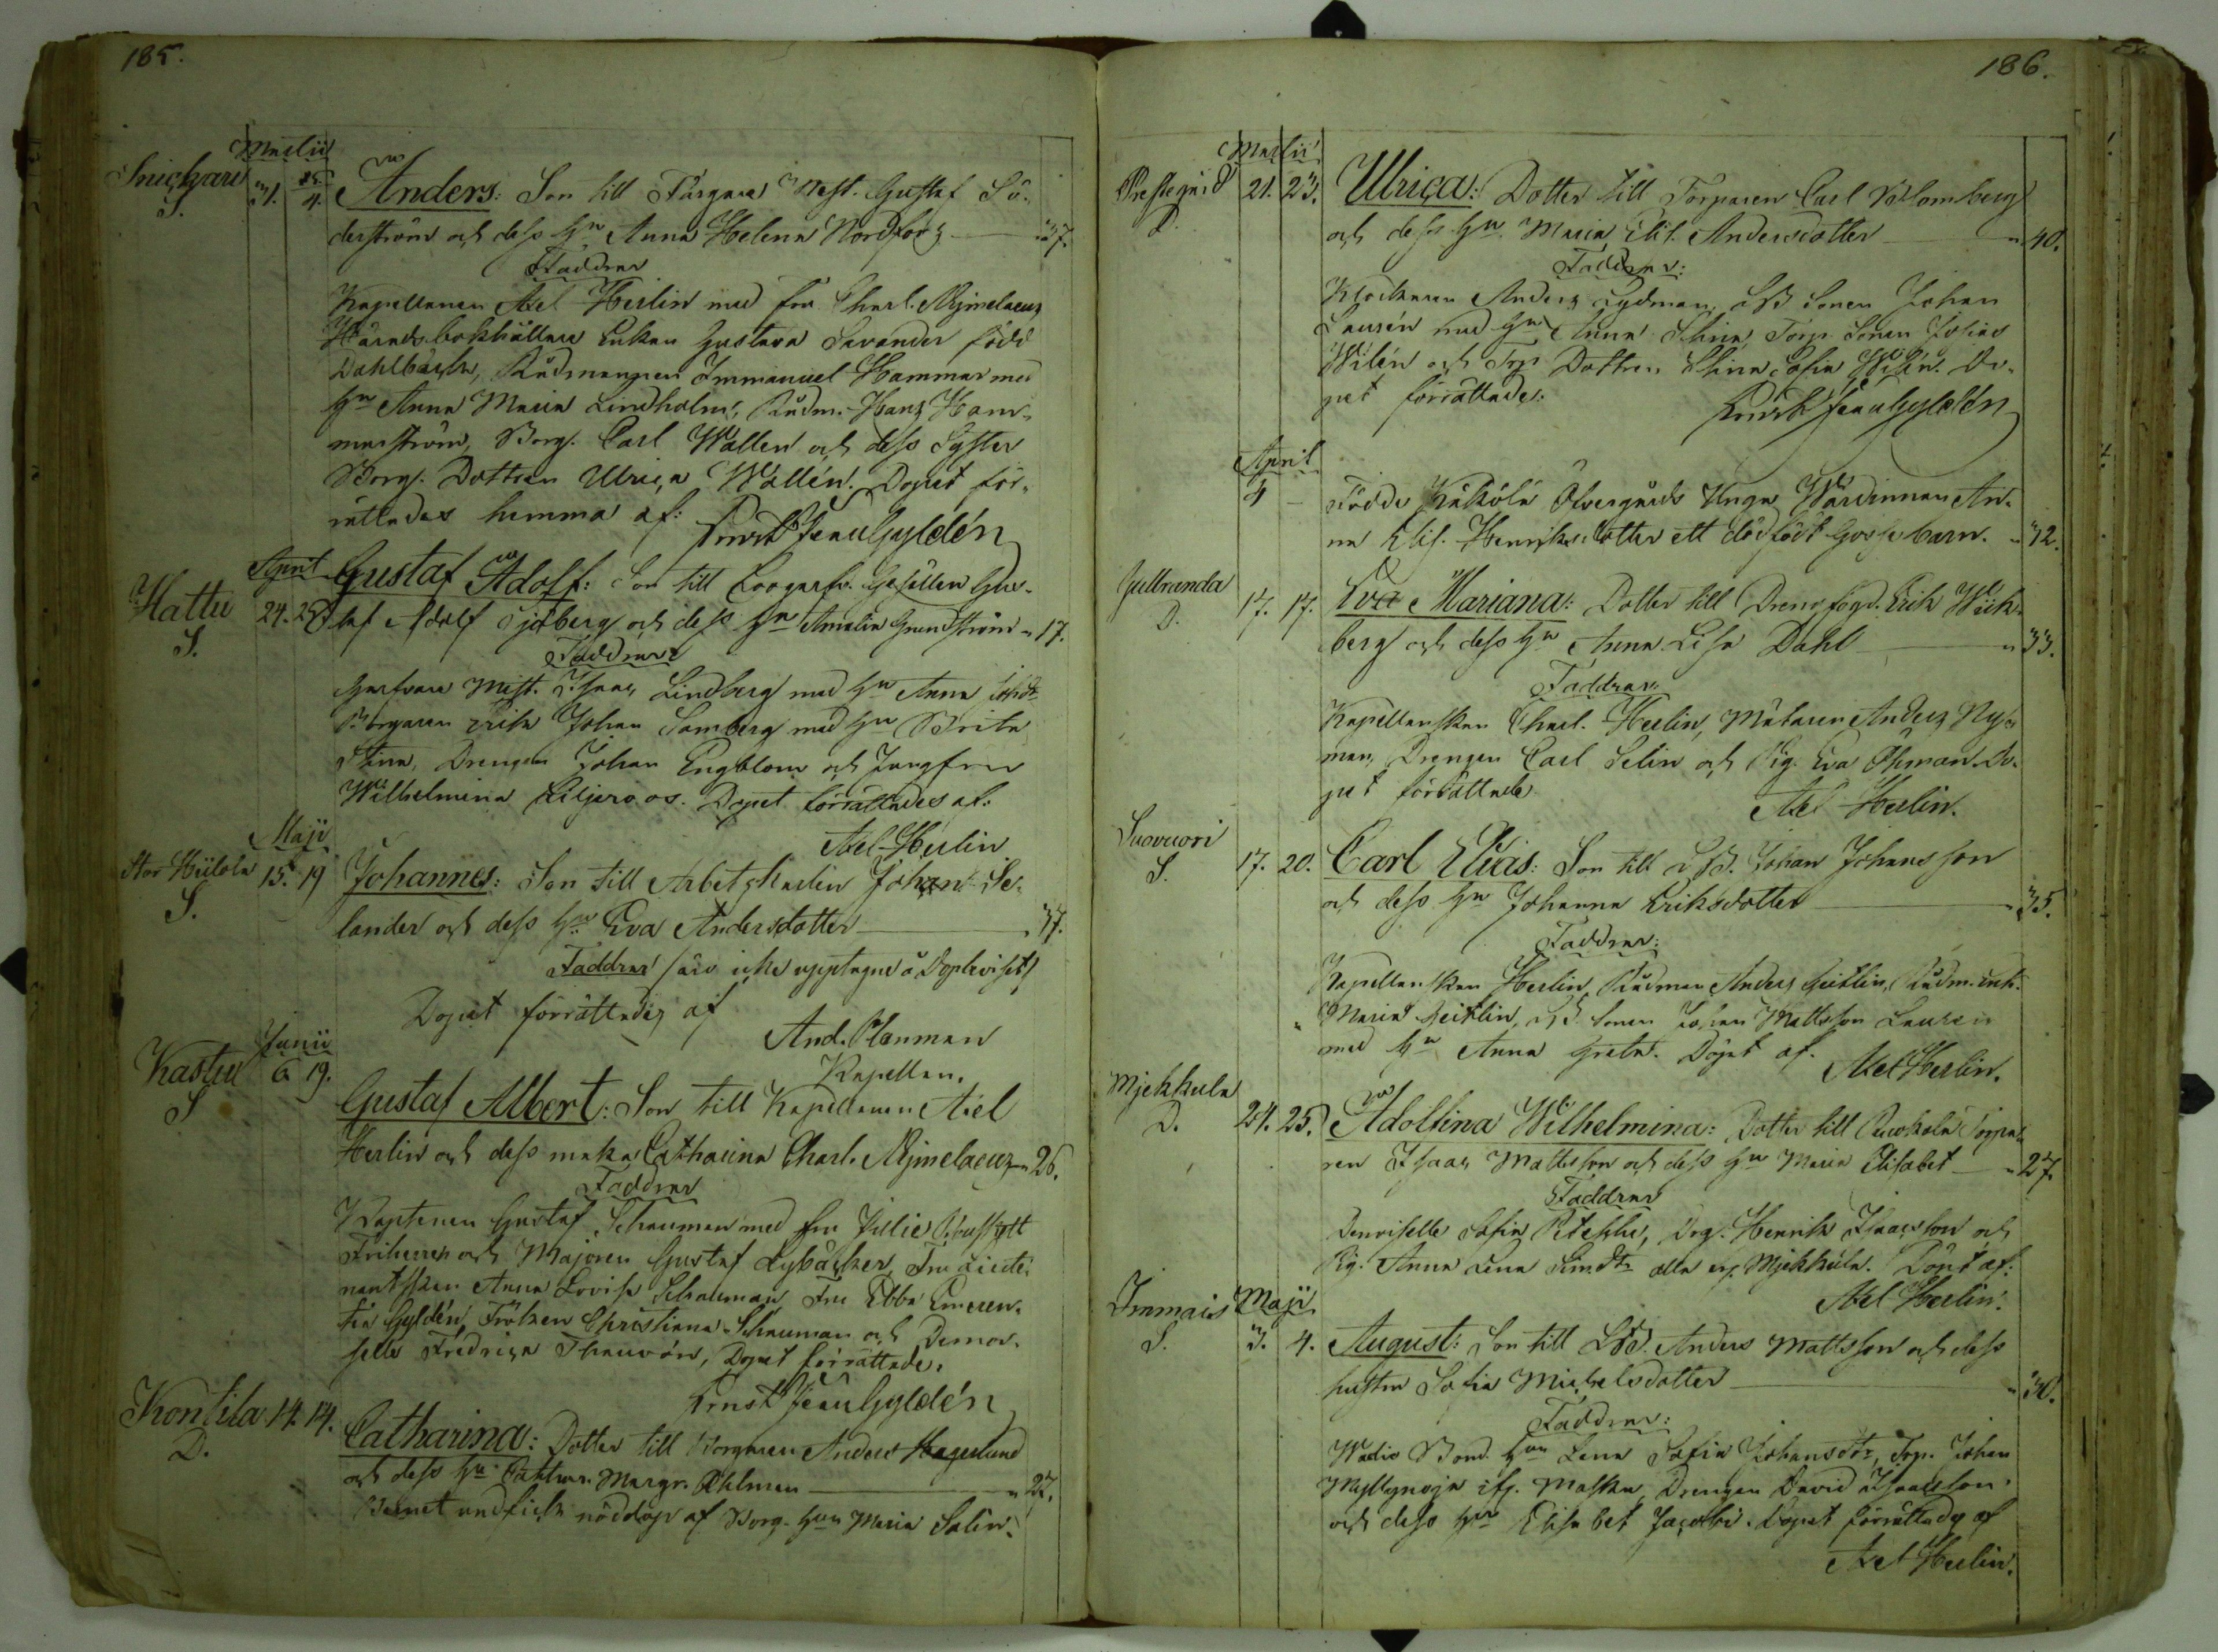 185.
Martii
Snickari 31. 4. Anders: Son till Färgare Mest. Gustaf Sö-
S.
derström och dess Hu Anna Helena Nordfors — 37.
Faddrar
Kapellanen Axel Herlin med fru Charl. Mjmelaeus
Häradsbokhållare Enkan Gustava Savander född
Dahlbäck, Rådmannen Immanuel Hammar med
Hu Anna Maria Lindholm, Rådm. Hans Ham-
marström, Borg. Carl Wallen och dess Syster
Borg. Dottren Ulrica Wallén. Dopet för-
rättades hemma af: Ernst Jean Gyldén
April
Hattu 24. 25. Gustaf Adolf: Son till Gesällen Gus-
S.
taf Adolf Sjöberg och dess Hu Amalia Grundström " 17.
Faddrar
Garfvare Mest. Isaac Lindberg med Hu Anna
Borgaren Erik Johan Samberg med Hu Brita
Stina, Drengen Johan Engblom och Jungfru
Wilhelmina Liljeroos. Dopet förrättades af.
Axel Herlin
Maji
Stor Heikola 15. 19 Johannes: Son till Arbetskarlen Johan Se-
S.
lander och dess Hu Eva Andersdotter — 37.
Faddrar äro icke upptagne å
Dopet förrättades af
And. Planman
Kapellan.
Junii
Kastu 6 19.
S
Gustaf Albert: Son till Kapellanen Axel
Herlin och dess maka Catharina Charl. Mjmelaeus " 26.
Faddrar
Kaptenen Gustaf Schauman med fru Julie
Friherren och Majoren Gustaf Lybäcker, Fru Lieute-
nantskan Anna Lovisa Schauman Fru Ebba Emeren-
tia Gyldén, Fröken Christiana Schauman och Demoi-
selle Fredrica Dopet förrättade.
Ernst Jean Gyldén
Kontila 14. 14. Catharina: Dotter till Borgaren Anders Hagerlund
D.
och dess Hu Cathar. Margr. Ahlman — " 27.
Barnet undfick nöddop af Borg. Hun Maria Salin.
186.
Martii
Prestegård 21. 23. Ulrica: Dotter till Torparen Carl Blomberg
D.
och dess Hu Maria Elis. Andersdotter — " 40.
Faddrar:
Klockaren Anders Lydman, Sonen Johan
Laurén med Hu Anna Stina, Torp. Sonen Josias
Wilén och Torp. Dottren Stina Sofia Wilén. Do-
pet förrättade. Ernst Jean Gyldén
April
4 — Födde Käkölä Öfvergårds Unga Wärdinnan An-
na Elis. Henriksdotter ett dödfödt Gossebarn. " 32.
Gullranda 17. 17. Eva Mariana: Dotter till Drengfogd. Erik Wick-
D.
berg och dess Hu Anna Lisa Dahl — " 33.
Faddrar:
Kapellanskan Charl. Herlin, Målaren Anders Ny-
man, Drengen Carl Selin och Pig. Eva Öhman. Do-
pet förrättade
Axel Herlin.
Suovuori 17. 20. Carl Elias: Son till Johan Johansson
S.
och dess Hu Johanna Eriksdotter — " 35.
Faddrar:
Kapellanskan Herlin, Rådman Anders Geitlin, Rådm. enk.
Maria Geitlin, Sonen Johan Mattsson Lauren
med Hu Anna Greta. Döpt af. Axel Herlin.
Mjekkula 24. 25. Adolfina Wilhelmina: Dotter till Torpa-
D.
ren Isaac Mattsson och dess Hu Maria Elisabet — " 27.
Faddrar
Demoiselle Sofia Drg. Henrik Isaacsson och
Pig. Anna Lena Simdtr alla ifr. Mjekkula. Döpt af.
Axel Herlin.
Immais Maji
S. 3. 4. August: Son till Anders Mattsson och dess
hustru Sofia Michelsdotter — " 30.
Faddrar:
Wadis Bond. Hun Lena Sofia Johansdtr, Torp. Johan
Myllynoja ifr. Masku, Drengen David Isaacsson
och dess Hu Elisabet Jacobi. Dopet förrättades af
Axel Herlin.